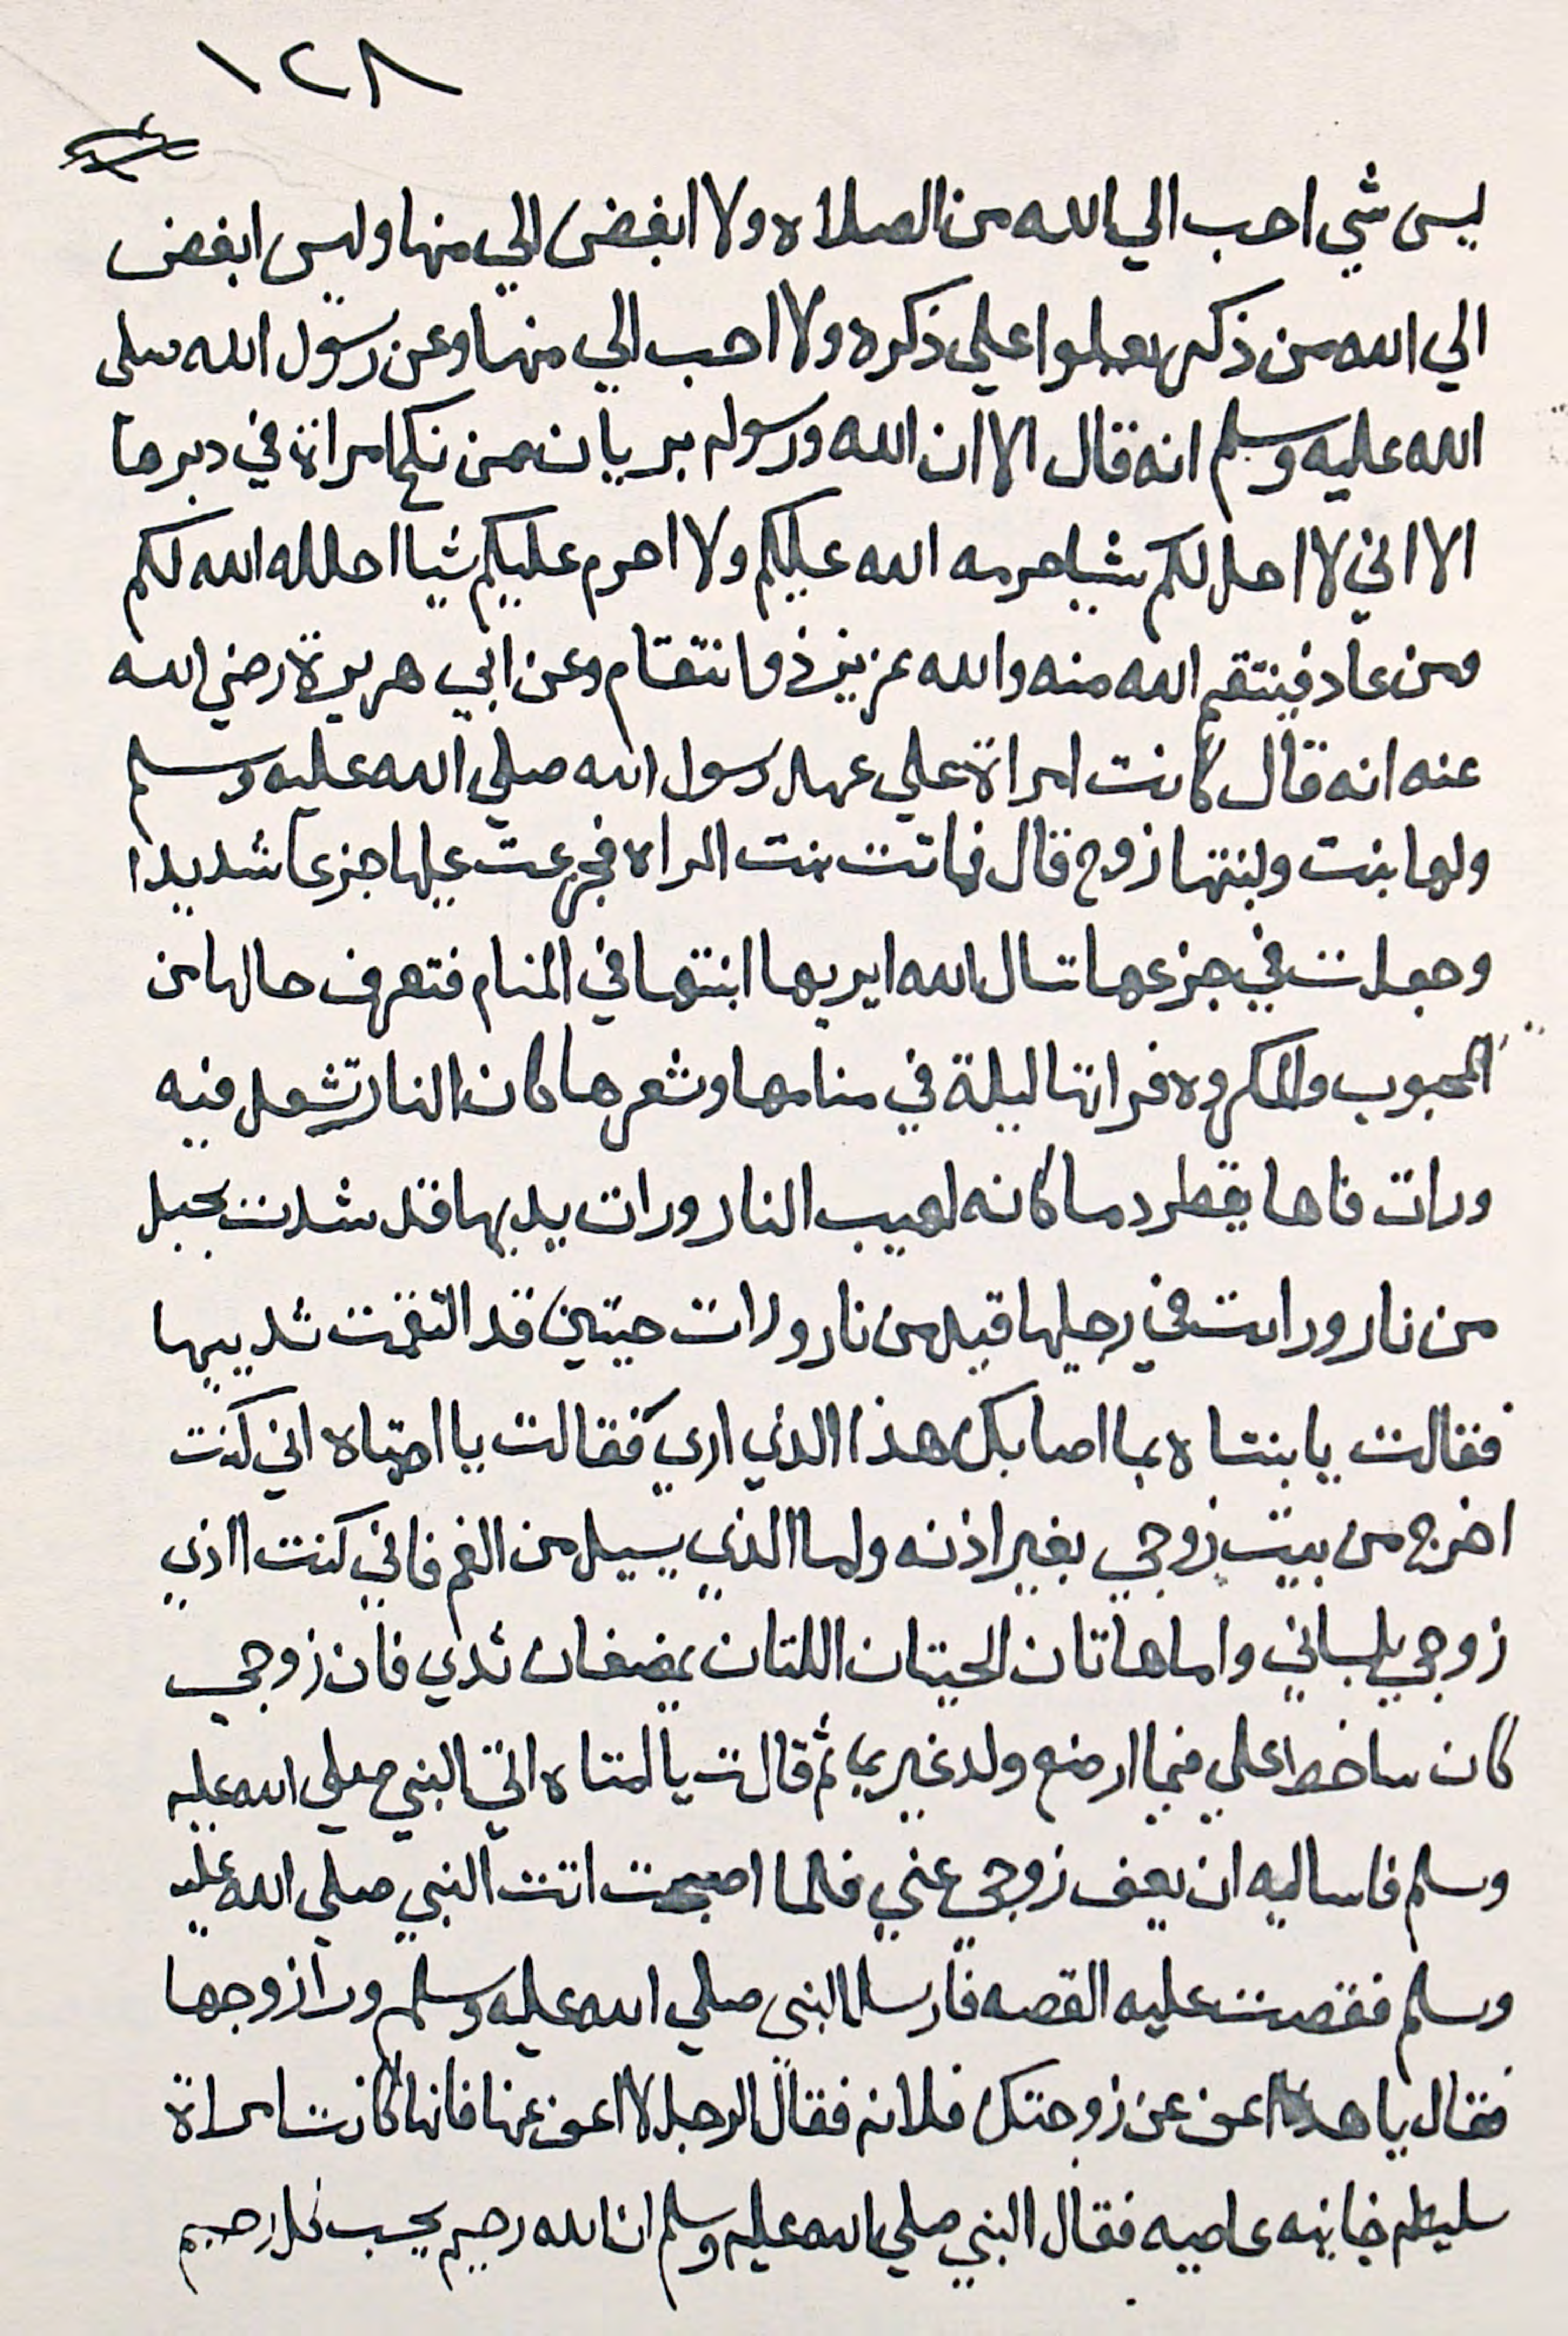 ١٢٨
ليس شي احب الي الله من الصلاه ولا ابغض الي منها وليس ابغض
الي الله من ذكر علي ذكره ولا احب الي منها وعن رسول الله صلى
الله عليه وسلم انه قال الا ان الله ورسوله بريان ممن نكح امراة في دبرها
الا اني لا احل لكم شيا حرمه الله عليكم ولا احرم عليكم شيا احلله الله لكم
ومن عاد فينتقم الله منه والله عزيز ذو انتقام وعن ابي هريرة رضي الله
عنه انه قال كانت امراة علي عهد رسول الله صلي الله عليه وسلم
ولها بنت ولبنتها زوج قال فماتت بنت المراه فجزعت عليها جزعا شديدا
وجعلت في جزعها تسال الله ايريها ابنتها في المنام فتعرف حالها من
المحبوب والمكروه فراتها ليلة في منامها وشعرها كان النار تشعل فيه
ورات فاها يقطر دما كانه لهيب النار ورات يديها قد شدت بحبل
من نار ورات في رجليها قيد من نار ورات حيتين قد التقمت ثدييها
فقالت يا بنتاه بما اصابك هذا الذي اري فقالت يا امتاه اني كنت
اخرج من بيت زوجي بغير اذنه ولما الذي يسيل من الفم فاني كنت ااذي
زوجي بلساني واما هاتان الحيتان اللتان يمضغان ثدي فان زوجي
كان ساخطا علي فيما ارضع ولد غيري ثم قالت يا امتاه اتي النبي صلي الله عليه
وسلم فاساليه ان يعف زوجي عني فلما اصبحت اتت النبي صلي الله عليه
وسلم فقصت عليه القصه فارسل النبي صلي الله عليه وسلم ورا زوجها
فقال يا هذا اعف عن زوجتك فلانه فقال الرجل لا اعف عنها فانها كانت امراة
سليطه خاينه عاصيه فقال النبي صلي الله عليه وسلم ان الله رحيم يحب كل رحيم